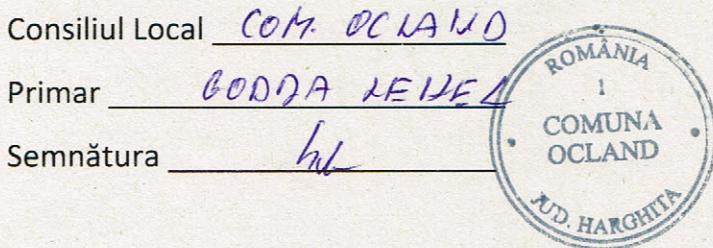 Consiliul Local COM. OCLAND
Primar GODRA LEHEL
Semnătura
ROMÂNIA
1
COMUNA
OCLAND
JUD. HARGHITA